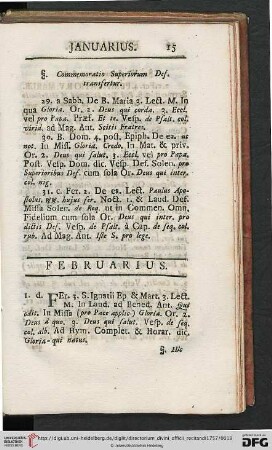 JANUARIUS. 15
§. Commemoratio Superiorum Def.
transfertur.
29. a Sabb. De B. Maria 2. Lect. M. In
qua Gloria. Or. 2. Deus qui corda. 3. Eccl.
vel pro Papa. Præf. Et te. Vesp. de Psalt. col.
virid. ad Mag. Ant. Scitis Fratres.
30. B. Dom. 4. post. Epiph. De ea. ut
not. In Miss. Gloria, Credo. In Mat. & priv.
Or. 2. Deus qui salut. 3. Eccl. vel pro Papa.
Post. Vesp. Dom. dic. Vesp. Def. Solen. pro
Superioribus Def. cum sola Or. Deus qui inter.
col. nig.
31. c. Fer. 2. De ea. Lect. Paulus Apo-
stolus. ww. hujus fer. Noct. 1. & Laud. Def.
Missa Solen. de Req. ut in Commem. Omn.
Fidelium cum sola Or. Deus qui inter. pro
dictis Def. Vesp. de Psalt. à Cap. de seq. col.
rub. Ad Mag. Ant. Iste S. pro lege.
FEBRUARIUS.
1. d. Fer. 3. S. Ignatii Ep. & Mart. 3. Lect.
M. In Laud. ad Bened. Ant. Qui
odit. In Missa (pro Pace applic.) Gloria. Or. 2.
Deus à quo. 3. Deus qui salut. Vesp. de seq.
col. alb. Ad Hym. Complet. & Horar. dic.
Gloria qui natus.
§. Hic
http://digi.ub.uni-heidelberg.de/diglit/directorium_divini_officii_recitandi1757/0013
© Universitätsbibliothek Heidelberg
gefördert durch die
DFG